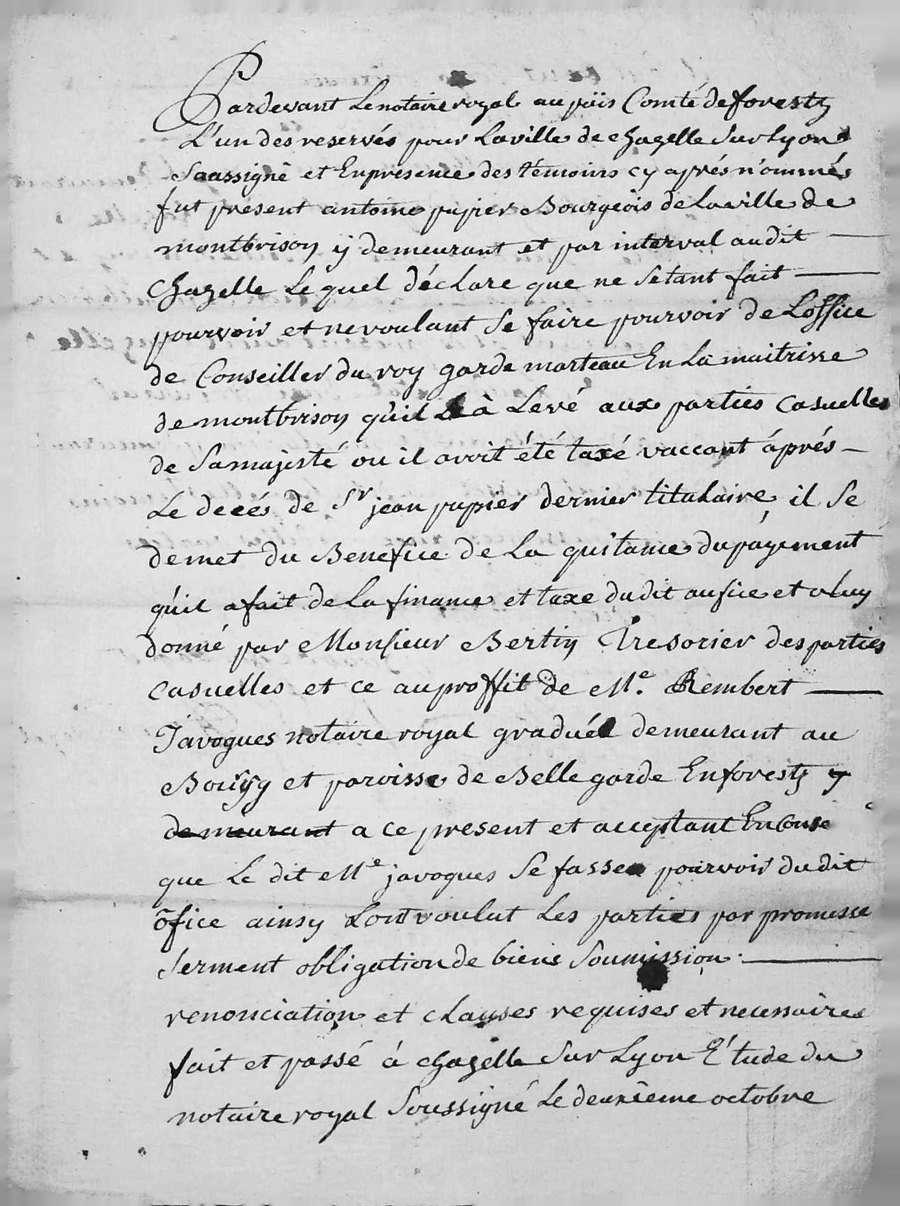 Pardevant Le notaire royal au païs Comté de forestz
L'un des reservés pour La ville de chazelle Sur Lyon
Soussigné et En presence des témoins cy aprés nommés
fut present antoine pupier Bourgeois de La ville de
montbrison ÿ demeurant et par interval audit
Chazelle Lequel déclare que ne S'etant fait
pourvoir et ne voulant Se faire pourvoir de L'office
de Conseiller du roy garde marteau En La maitrisse
de montbrison qu'il à Levé aux parties Casuelles
de Sa majesté ou il avoit été taxé vaccant áprés
Le decés de Sr jean pupier dernier titulaire, il Se
demet du Benefice de La quitance du payement
qu'il a fait de La finance et taxe dudit aufice et a Luy
donné par Monsieur Bertin Tresorier des parties
Casuelles et ce au proffit de Me. Rembert
Javogues notaire royal gradué demeurant au
Bourg et paroisse de Bellegarde En forestz y
demeurant a ce present et acceptant En Cause
que Le dit Me javogues Se fasse pourvoir dudit
office ainsy L'ont voulut Les parties par promesse
Serment obligation de biens Soumission
renonciation et Clauses requises et necessaires
fait et passé á chazelle Sur Lyon Étude du
notaire royal Soussigné Le deuxième octobre